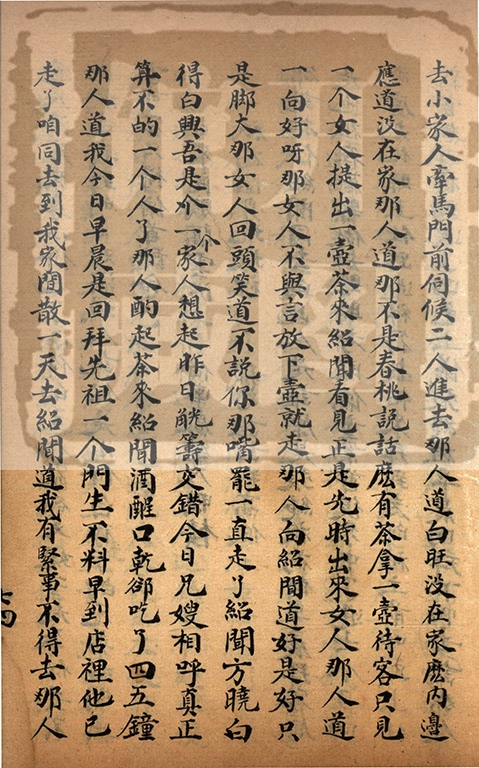 去小家人牽馬門前伺候二人進去那人道白旺没在家麽内邊
應道没在家那人道那不是春桃説話麽有茶拿一壺待客只見
一个女人提出一壺茶來紹聞看見正是先時出來女人那人道
一向好呀那女人不與言放下壺就走那人向紹聞道好是好只
是脚大那女人回頭笑道不説你那嘴罷一直走了紹聞方曉白
得白興吾是个一家人想起昨日觥籌交錯今日兄嫂相呼真正
算不的一个人了那人酌起茶來紹聞酒醒口乾郤吃了四五鐘
那人道我今日早晨是回拜先祖一个門生不料早到店裡他已
走了咱同去到我家閒散一天去紹聞道我有緊事不得去那人
七四